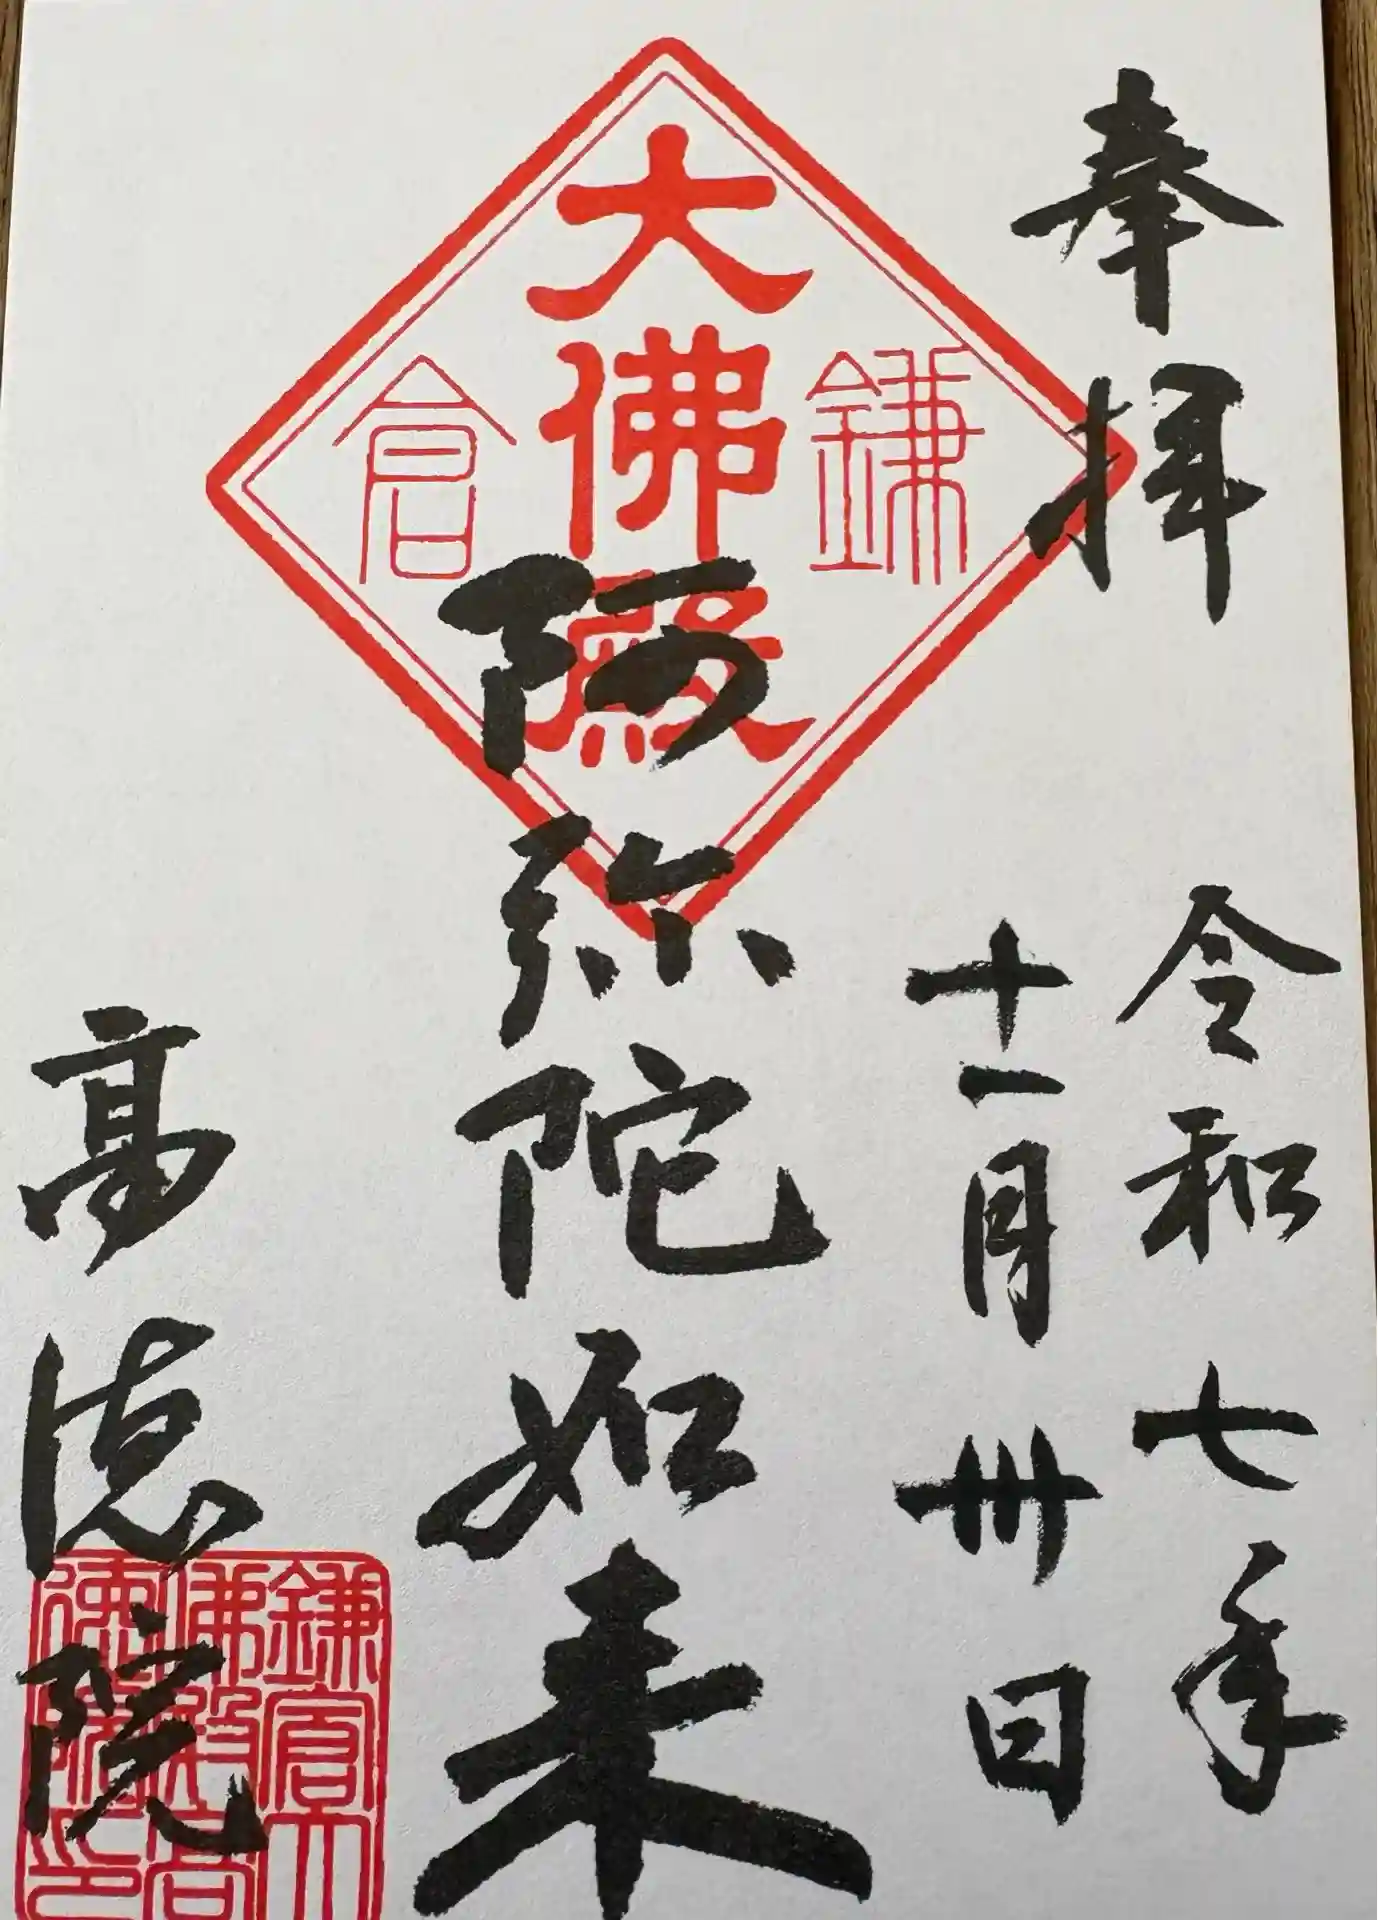 奉拝
令和七年
十一月卅日
鎌倉
大佛殿
阿弥陀如来
高徳院
鎌倉大
佛殿高
徳院印